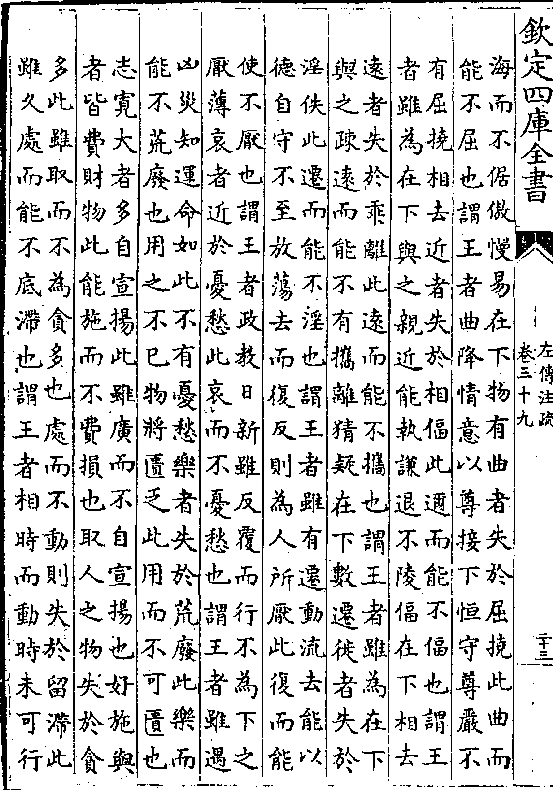 欽定四庫全書
左傳注疏
卷三十九
二十三
海而不倨傲慢易在下物有曲者失於屈撓此曲而
能不屈也謂王者曲降情意以尊接下恒守尊嚴不
有屈撓相去近者失於相偪此邇而能不偪也謂王
者雖為在下與之親近能執謙退不陵偪在下相去
遠者失於乖離此遠而能不攜也謂王者雖為在下
與之疎遠而能不有攜離猜疑在下數遷徙者失於
淫佚此遷而能不淫也謂王者雖有遷動流去能以
德自守不至放蕩去而復反則為人所厭此復而能
使不厭也謂王者政教日新雖反覆而行不為下之
厭薄哀者近於憂愁此哀而不憂愁也謂王者雖遇
凶災知運命如此不有憂愁樂者失於荒廢此樂而
能不荒廢也用之不已物將匱乏此用而不可匱也
志寬大者多自宣揚此雖廣而不自宣揚也好施與
者皆費財物此能施而不費損也取人之物失於貪
多此雖取而不為貪多也處而不動則失於留滯此
雖久處而能不底滯也謂王者相時而動時未可行